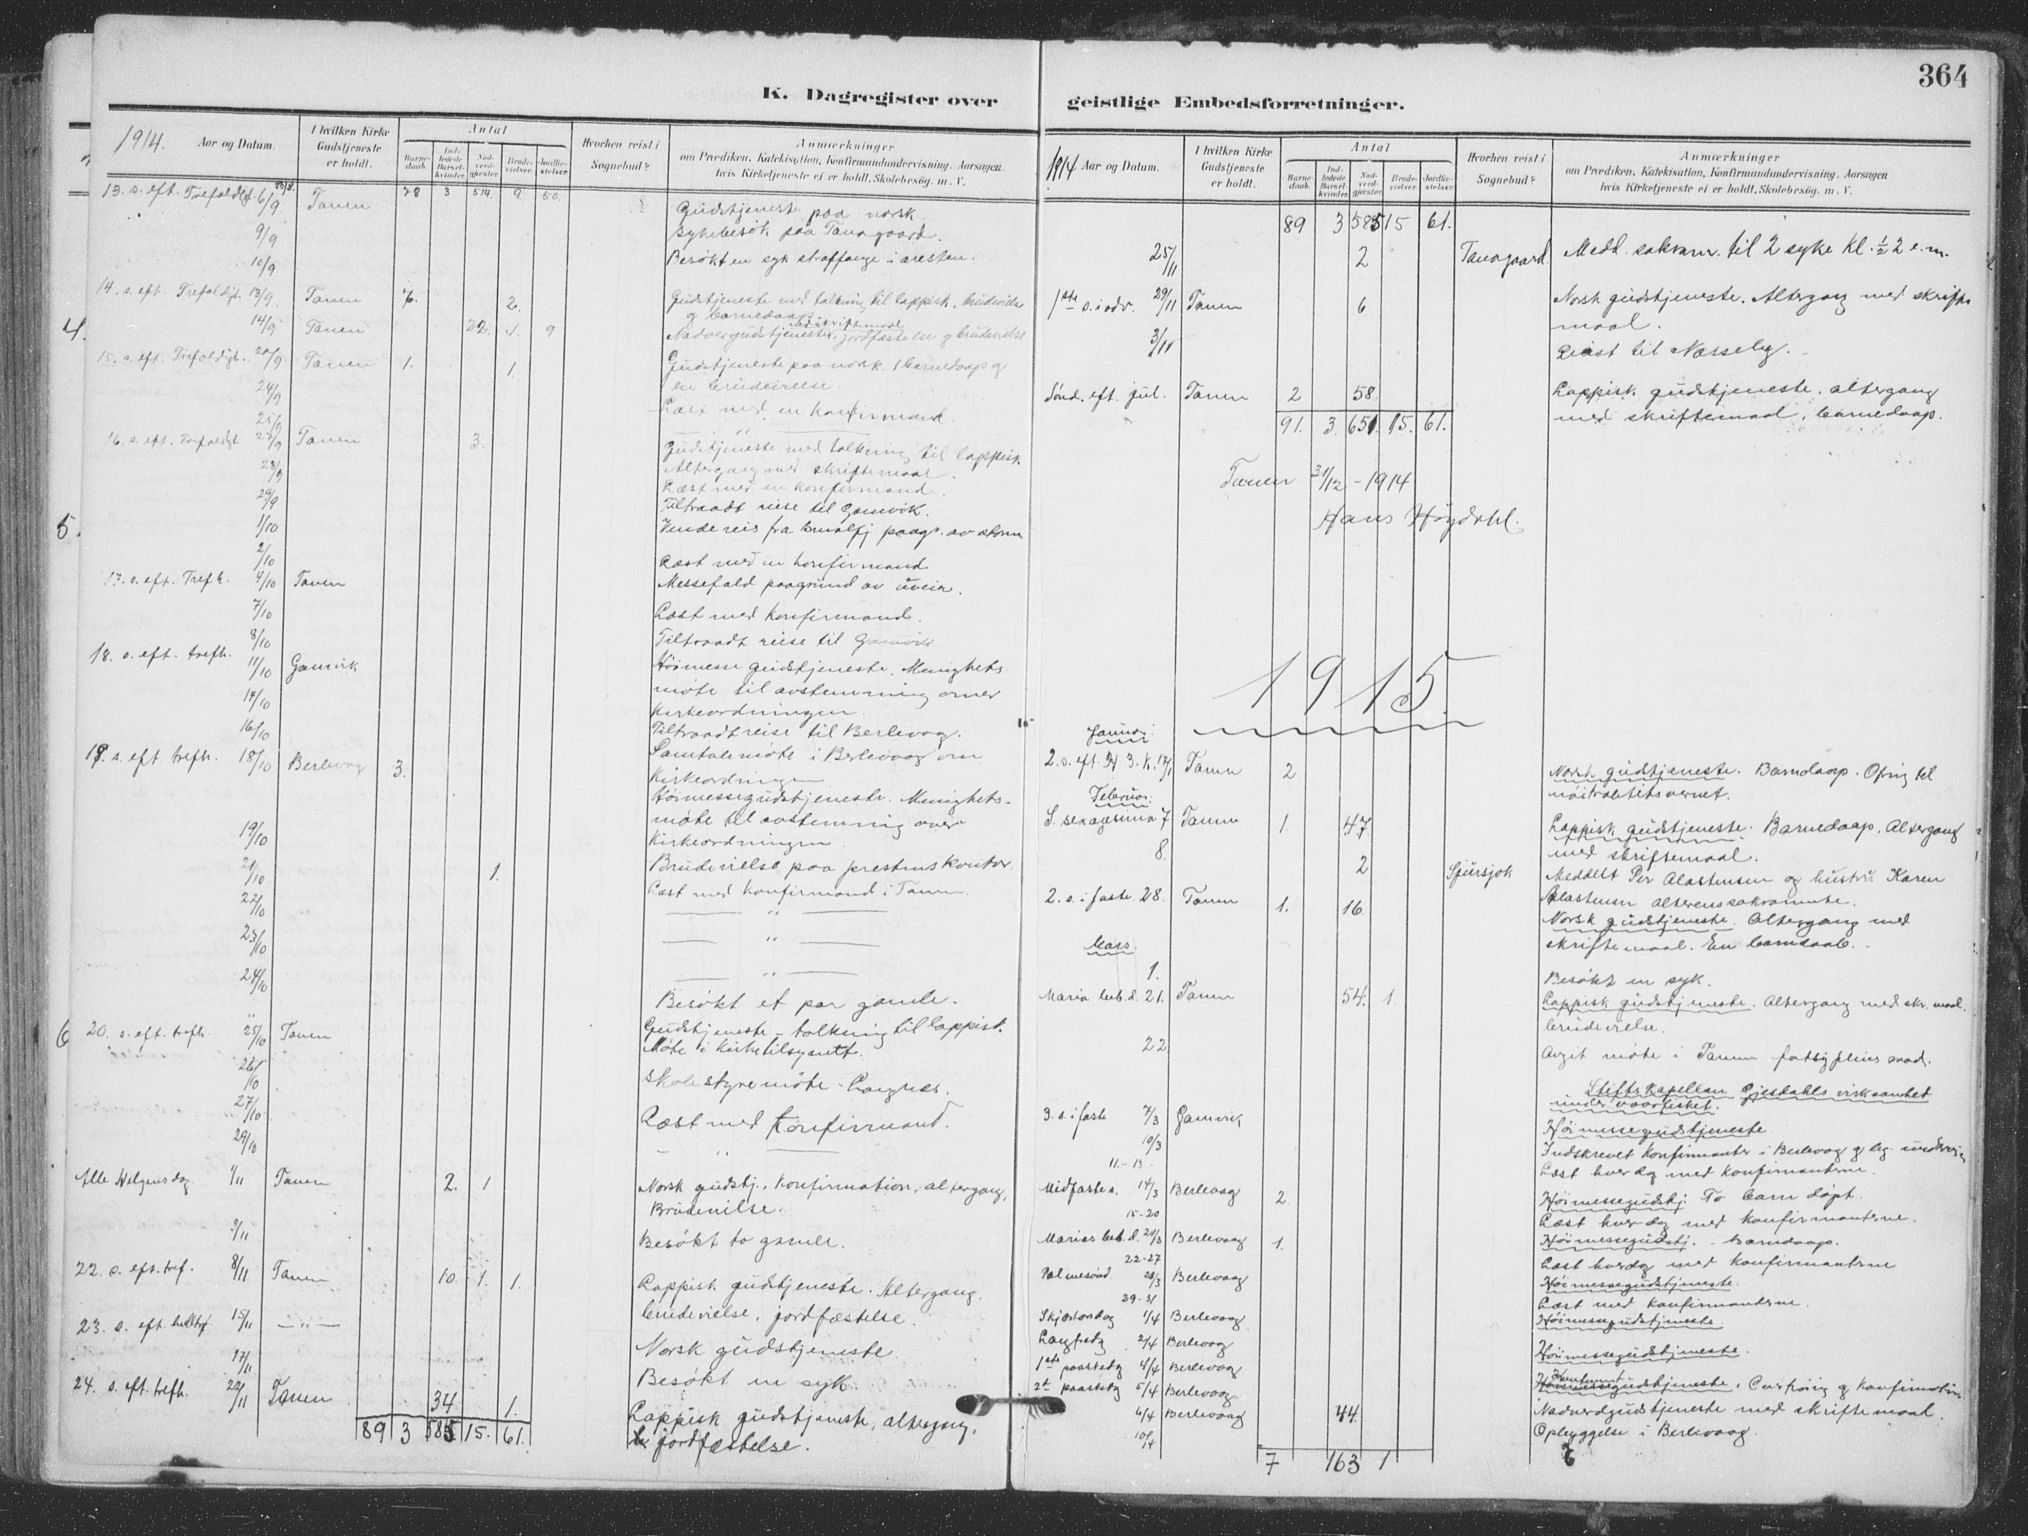 364
K. Dagregister over
geistlige Embedsforretninger.
1914. Aar og Datum.
I hvilken Kirke Gudstjeneste er holdt.
Antal
Barnedaab.
Indledede Barselkvinder.
Nadverdgjester.
Brudevielser.
Jordfæstelser.
Hvorhen reist i Sognebud?
Anmærkninger
om Prædiken, Katekisation, Konfirmandundervisning, Aarsagen
hvis Kirketjeneste ei er holdt, Skolebesøg, m. V.
13. s. eft. Trefoldigh. 6/9 Tanen 78 3 514. 9. 50. Gudstjeneste paa norsk
9/9 Sykebesök paa Tanagaard.
10/9 Besökt en syk straffange i aresten.
14. s. eft. Trefoldigh. 13/9 Tanen 7. 2. Gudstjeneste med tolkning til lappisk, brudevielse
og barnedaap
14/9 Tanen 22. 1. 9 Nadverdgudstjeneste m. skriftemaal, jordfæstelse og brudevielse
15. s. eft. Trefoldigh. 20/9 Tanen 1. 1. Gudstjeneste paa norsk. 1 barnedaap og
en brudevielse.
24/9 Læst med en konfirmand
25/9 — " —
16. s. eft. Trefoldigh. 27/9 Tanen 3. Gudstjeneste med tolkning til lappisk.
Altergang med skriftemaal.
28/9 Læst med en konfirmand.
29/9 Tiltraadt reise til Gamvik.
1/10 Vendereis fra paagr. av storm
2/10 Læst med en konfirmand
17. s. eft. Trefh. 4/10 Tanen Messefald paagrund av uveir.
7/10 Læst med konfirmand.
8/10 Tiltraadt reise til Gamvik
18. s. eft. trefh. 11/10 Gamvik Höimessegudstjeneste. Menighets
möte til avstemning over
14/10 Kirkeordningen.
16/10 Tiltraadt reise til Berlevaag.
Samtalemöte i Berlevaag om
19. s. eft. trefh. 18/10 Berlevag 3. Kirkeordningen
Höimessegudstjeneste. Menighets-
möte til avstemning over
19/10 Kirkeordningen.
21/10 1. Brudevielse paa prestens kontor.
22/10 Læst med konfirmand i Tanen.
23/10 — " —
24/10 — " —
" Besökt et par gamle.
20. s. eft. trefh. 25/10 Tanen Gudstjeneste - tolkning til lappisk.
Möte i kirketilsynet.
26/10 Skolestyremöte - Langnes.
27/10 Læst med konfirmand.
29/10 — " —
Alle Helgensdag 1/11 Tanen 2. 1 Norsk gudstj. Konfirmation, altergang,
Brudevielse.
3/11 Besökt to gamle.
22. s. eft. tref. 8/11 Tanen 10. 1. 1. Lappisk gudstjeneste. Altergang,
brudevielse, jordfæstelse.
23. s. eft. trefh. 15/11 — " — Norsk gudstjeneste
17/11 Besökt en syk.
24. s. eft. trefh. 22/11 Tanen 34 1. Lappisk gudstjeneste, altergang,
jordfæstelse.
89 3 585 15. 61.
1914 Aar og Datum.
I hvilken Kirke Gudstjeneste er holdt.
Antal
Barnedaab.
Indledede Barselkvinder.
Nadverdgjester.
Brudevielser.
Jordfæstelser.
Hvorhen reist i Sognebud?
Anmærkninger
om Prædiken, Katekisation, Konfirmandundervisning, Aarsagen
hvis Kirketjeneste ei er holdt, Skolebesøg, m. V.
89 3 585 15 61.
25/11 2 Tanagaard. Medd. sakram. til 2 syke Kl. ½ 2 e.m.
1ste s. i adv. 29/11 Tanen 6 Norsk gudstjeneste. Altergang med skrifte
maal.
Reist til Næsseby.
Sönd. eft. jul. Tanen 2 58. Lappisk gudstjeneste, altergang
med skriftemaal, barnedaap.
91. 3. 651. 15. 61.
Tanen 31/12 - 1914
Hans Höydahl.
1915.
Januar.
2. s. eft. H. 3. K. 17/1 Tanen 2 Norsk gudtjeneste. Barnedaap. Ofring til
nöitralitetsvernet.
Februar.
S. sexagesima 7 Tanen 1. 47. Lappisk gudstjeneste. Barnedaap. Altergang
med skriftemaal.
8. 2 Sjursjok Meddelt Per Alastensen og hustru Karen
Alastensen alterens sakramente.
2. s. i faste. 28. Tanen 1. 16. Norsk gudstjeneste. Altergang med
skriftemaal. En barnedaab.
Mars.
1. Besökt en syk.
Maria beb. d. 21. Tanen 54. 1. Lappisk gudstjeneste. Altergang med skr. maal.
brudevielse.
22 Avgit möte i Tanen
Stiftskapellan Gjesdahls virksomhet
under vaarfisket.
3. s. i faste 7/3 Gamvik Höimessegudstjeneste
10/3 Indskrevet konfirmanter i Berlevaag og beg. underv.
11.-13. Læst hverdag med konfirmanterne.
Midfastes. 14/3 Berlevaag 2. Höimessegudstj. To barn döpt.
15-20 Læst hverdag med konfirmanterne.
Marias beb. d. 21/3 Berlevaag 1. Höimessegudstj. - barnedaap.
22-27 Læst hverdag med konfirmanterne
Palmesönd 28/3 Berlevaag Höimessegudstjeneste.
29-31 Læst med konfirmanterne.
Skjærtorsdag 1/4 Berlevaag Höimessegudstjeneste.
Langfredg 2/4 Berlevaag Höimessegudstjeneste.
1ste paaskedag 4/4 Berlevaag
2. paaskedg 5/4 Berlevaag gudstjeneste. og konfirmation
6/4 Berlevaag 44. Nadverdgudstjeneste med skriftemaal.
Opbyggelse i Berlevaag.
7 163 1
4.
5.
6